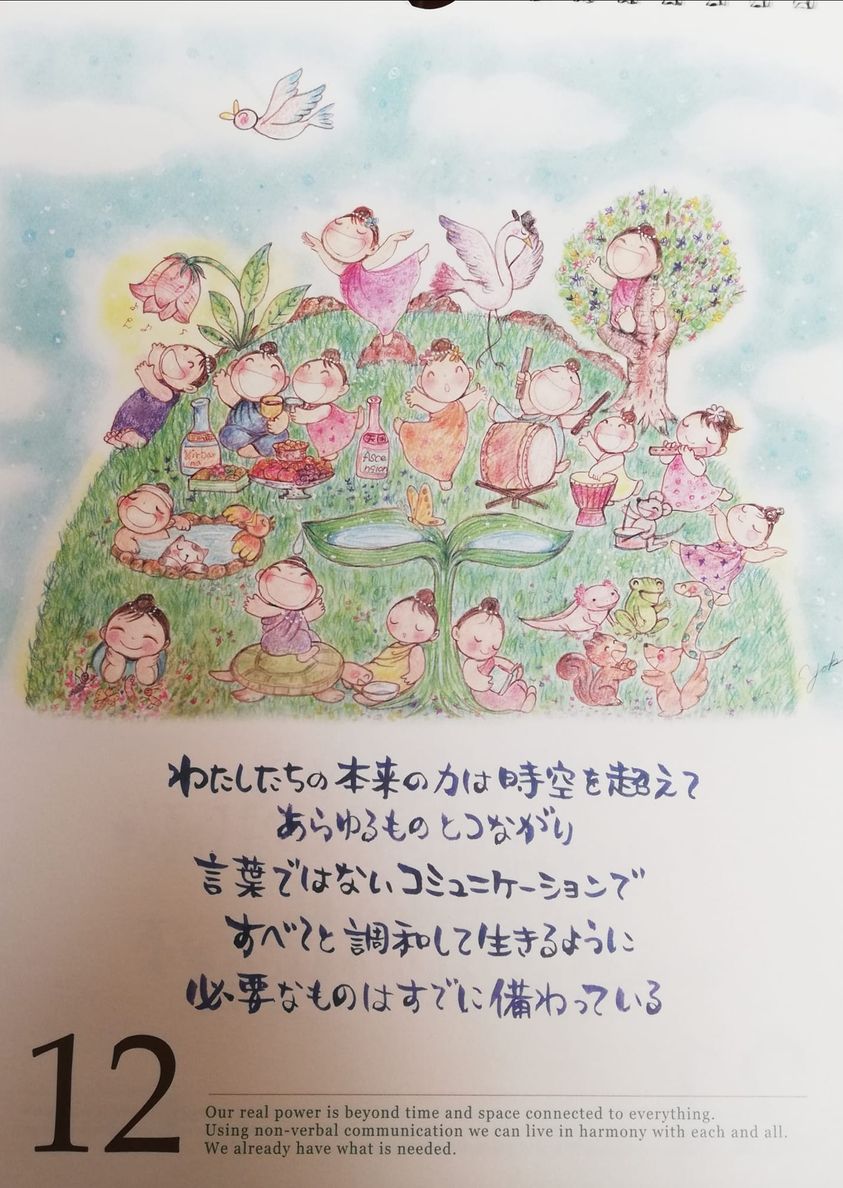 Nirbana
Asce
nsion
わたしたちの本来の力は時空を超えて
あらゆるものとつながり
言葉ではないコミュニケーションで
すべてと調和して生きるように
必要なものはすでに備わっている
12
Our real power is beyond time and space connected to everything.
Using non-verbal communication we can live in harmony with each and all.
We already have what is needed.